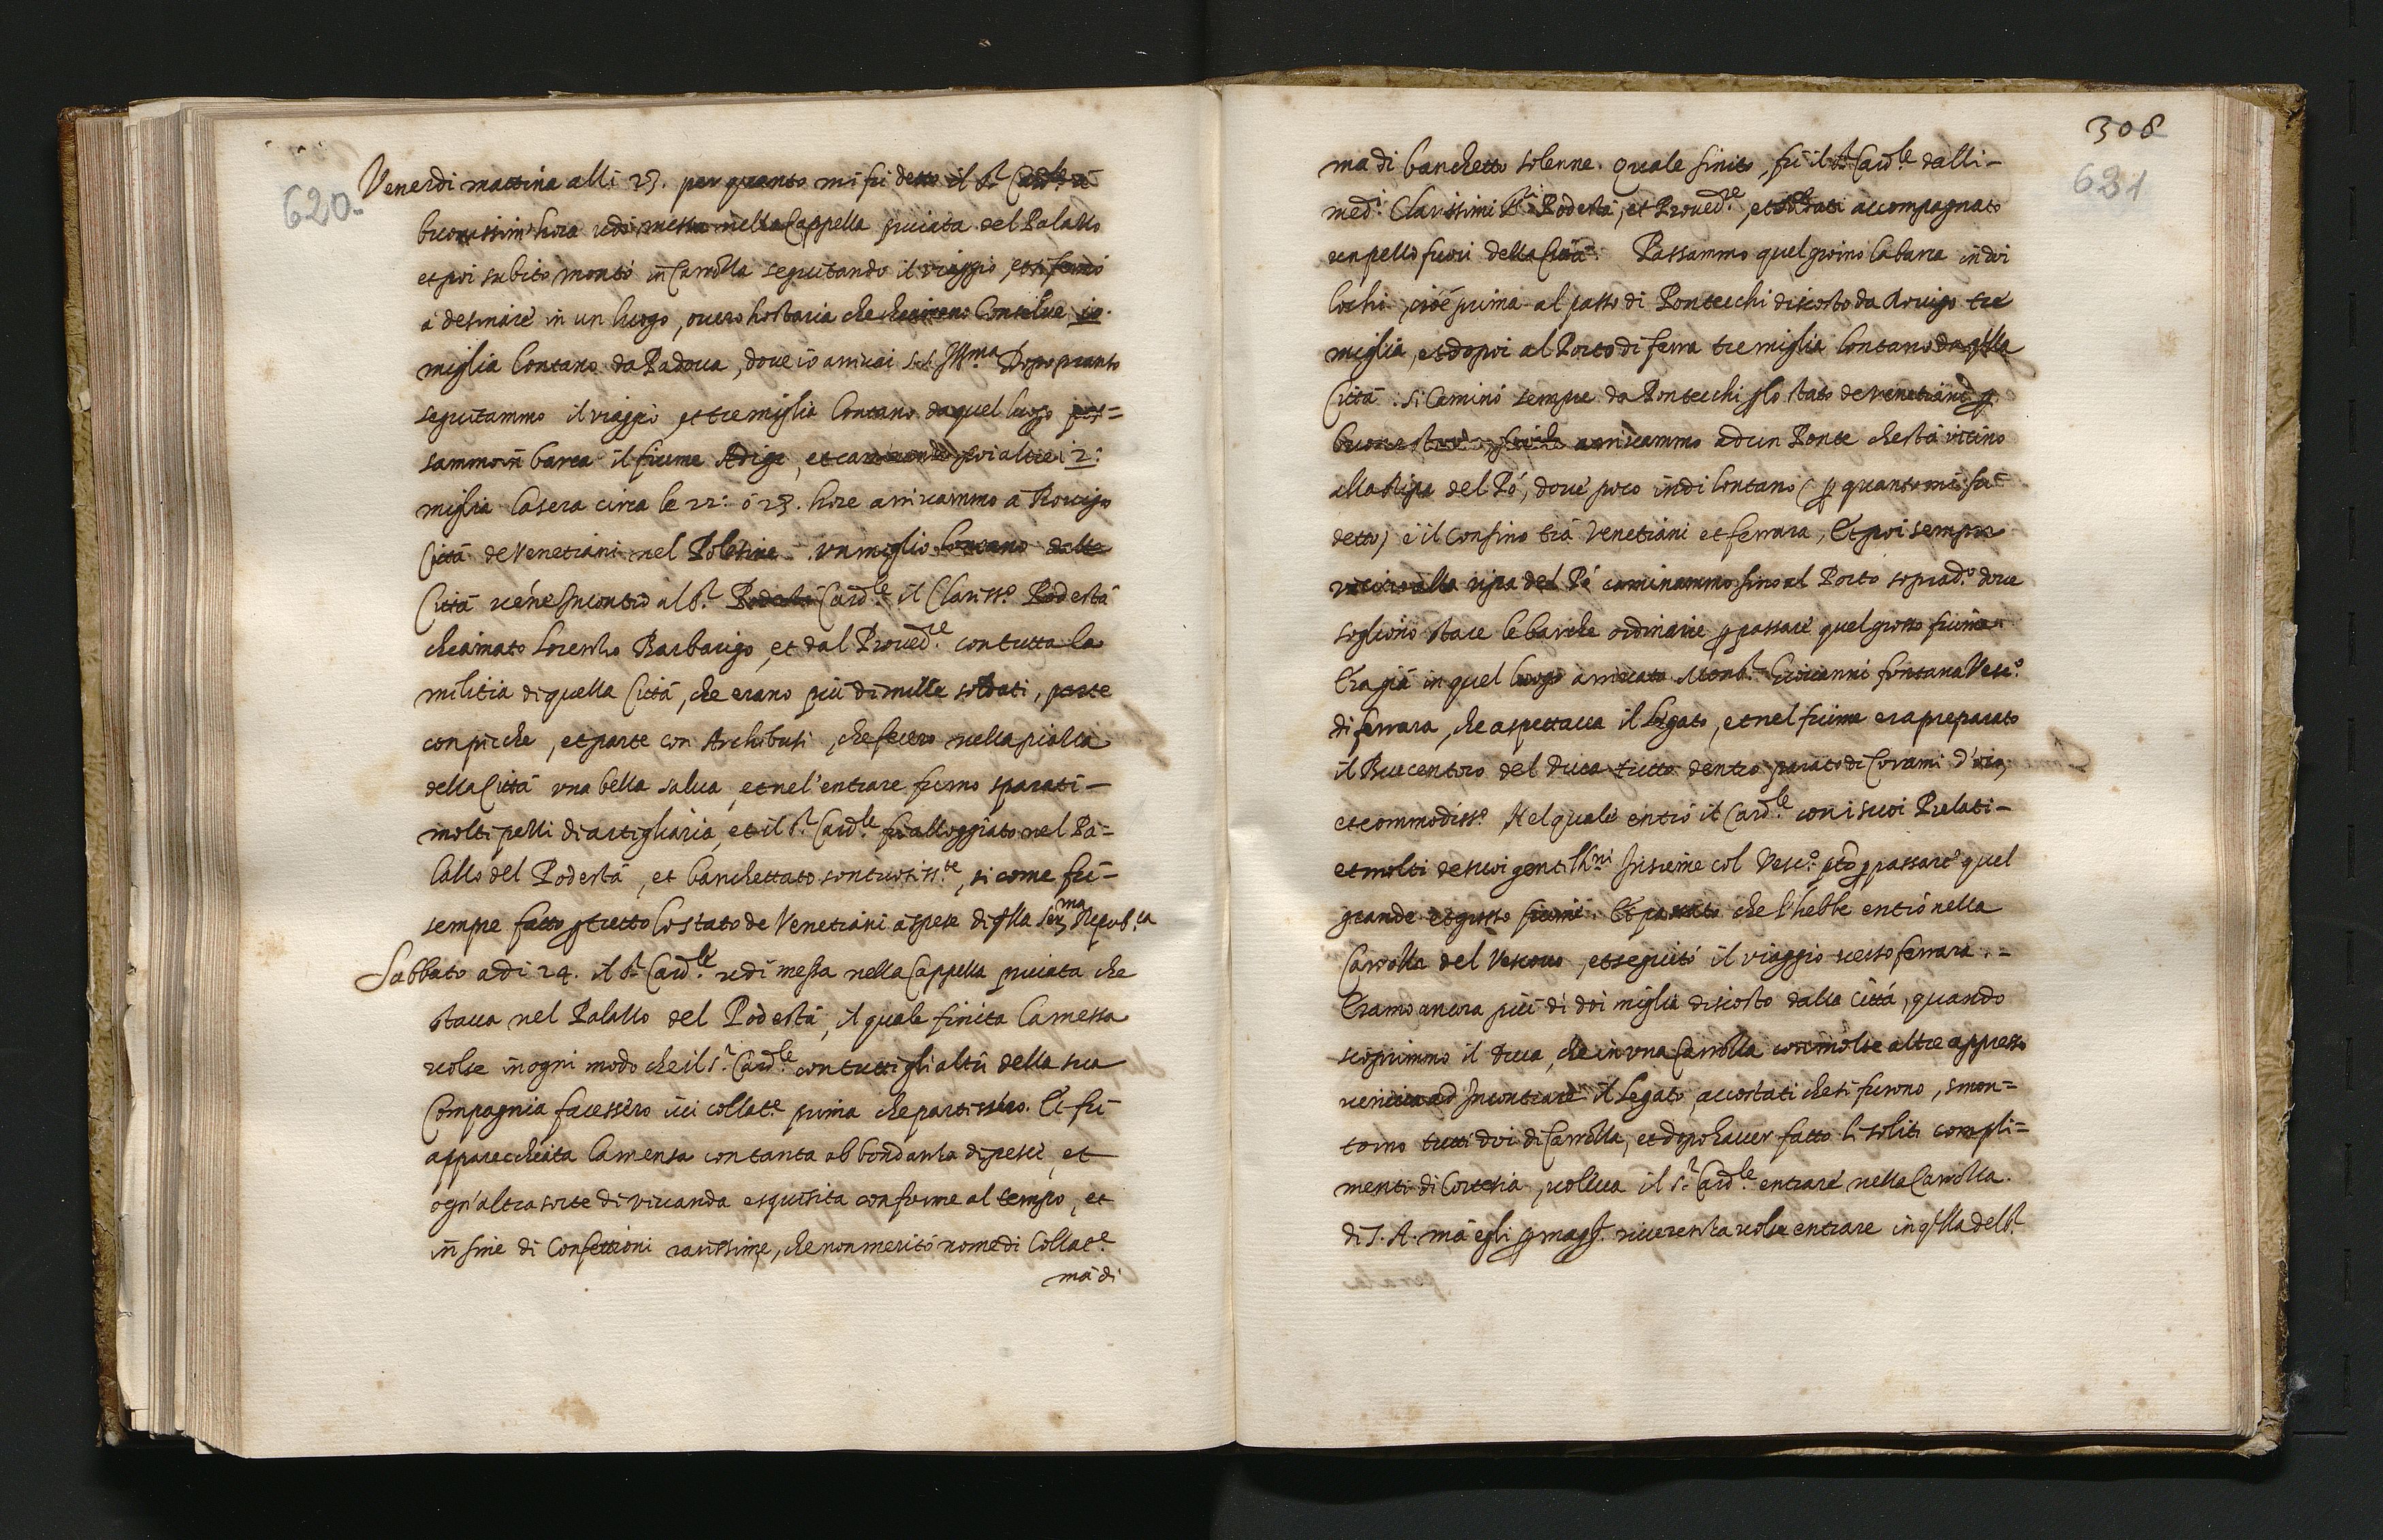 620.
Venerdi mattina alli 23. per quanto mi fu detto il Sr. Cardle. à
buonissim'hora udi messa nella Cappella privata del Palazzo
et poi subito montò in Carrozza seguitando il viaggio, et si fermò
à desinare in un luogo, overo hostaria che chiamano Conselve 10.
miglia lontano da Padova, dove io arrivai S.S. Illma. Dopo pranso
seguitammo il viaggio et tre miglia lontano da quel luogo pas=
sammo in barca il fiume Adige, et caminando poi altre 12:
miglia la sera circa le 22: ò 23. hore arrivammo à Rovigo
Città de Venetiani nel Polesine. Un miglio lontano dalla
Città venne Incontro al Sr. Cardle. il Clariss.o Podestà
chiamato Lorenzo Barbarigo, et dal Proved.re con tutta la
militia di quella Città, che erano più di mille soldati, parte
con picche, et parte con Archibusi, che fecero nella piazza
della Città una bella salva, et nel'entrare furno sparati
molti pezzi di artigliaria, et il Sr. Cardle. fu alloggiato nel Pa=
lazzo del Podestà, et banchettato sontuosiss.te, si come fù
sempre fatto p tutto lo stato de Venetiani à spese di qlla Serma. Repub.ca
Sabbato adi 24. il Sr. Cardle. udi messa nella Cappella privata che
stava nel Palazzo del Podestà, il quale finita la messa
volse in ogni modo che il Sr. Cardle. con tutti gli altri della sua
Compagnia facessero ivi collat.e prima che partissero. Et fù
apparecchiata la mensa con tanta abbondanza di pesce, et
ogn'altra sorte di vivanda esquisita conforme al tempo, et
in fine di Confettioni rarissime, che non meritò nome di Collat.e
mà di
308
621
ma di banchetto solenne. Quale finito, fù il Sr. Cardle. dalli
med.i Clarissimi Sri. Podestà, et Proved.re, et soldati accompagnato
un pezzo fuori della Città. Passammo quel giorno la barca in doi
lochi, cioè prima al passo di Pontecchi discosto da Rovigo tre
miglia, et dopoi al Porto di ferra tre miglia lontano da qlla
Città. Si Caminò sempre da Pontecchi p lo stato de Venetiani, et p
buone strade arrivammo ad un Ponte che stà vicino
alla Ripa del Pò, dove poco indi lontano (p quanto mi fu
detto) è il Confino trà Venetiani et ferrara, Et poi sempre
vicino alla ripa del Pò caminammo sino al Porto soprad.o dove
sogliono stare le barche ordinarie p passare quel grosso fiume
Era già in quel luogo arrivato Monsr. Giovanni fontana Vesc.o
di ferrara, che aspettava il Legato, et nel fiume era preparato
il Bucentoro del Duca tutto dentro parato di Corami d'oro,
et commodiss.o Nel quale entrò il Cardle. con i suoi Prelati
et molti de suoi gentilhni Insieme col Vesc.o p passare quel
grande et grosso fiume. Et passato che l'hebbe entrò nella
Carrozza del Vescovo, et seguitò il viaggio verso ferrara.
Eramo ancora più di doi miglia discosto dalla Città, quando
scoprimmo il Duca, che in una Carrozza con molte altre appresso
veniva ad Incontrare il Legato, accostati che si furono, smon=
torno tutti doi di Carrozza, et dopo haver fatto li soliti compli=
menti di Cortesia, voleva il Sr. Cardle. entrare nella Carrozza
di S. A. mà egli p magg.r riverenza volse entrare in qlla del Sr.